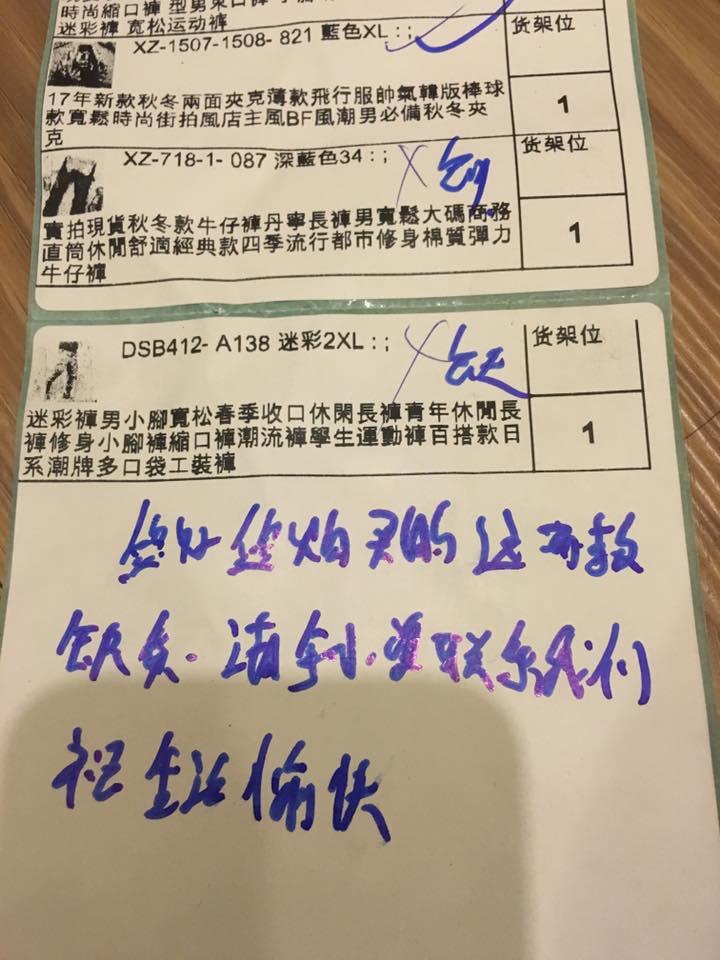 迷彩褲 宽松运动裤
货架位
XZ-1507-1508- 821 藍色XL : ;
1
17年新款秋冬兩面夾克薄款飛行服帥氣韓版棒球
款寬鬆時尚街拍風店主風BF風潮男必備秋冬夾
克
货架位
XZ-718-1- 087 深藍色34 : ;
X
1
實拍現貨秋冬款牛仔褲丹寧長褲男寬鬆大碼商務
直筒休閒舒適經典款四季流行都市修身棉質彈力
牛仔褲
货架位
DSB412- A138 迷彩2XL : ;
X 缺
1
迷彩褲男小腳寬松春季收口休閑長褲青年休閒長
褲修身小腳褲縮口褲潮流褲學生運動褲百搭款日
系潮牌多口袋工裝褲
您好 您拍买的这两款
缺货.请到.要联系我们
祝生活愉快